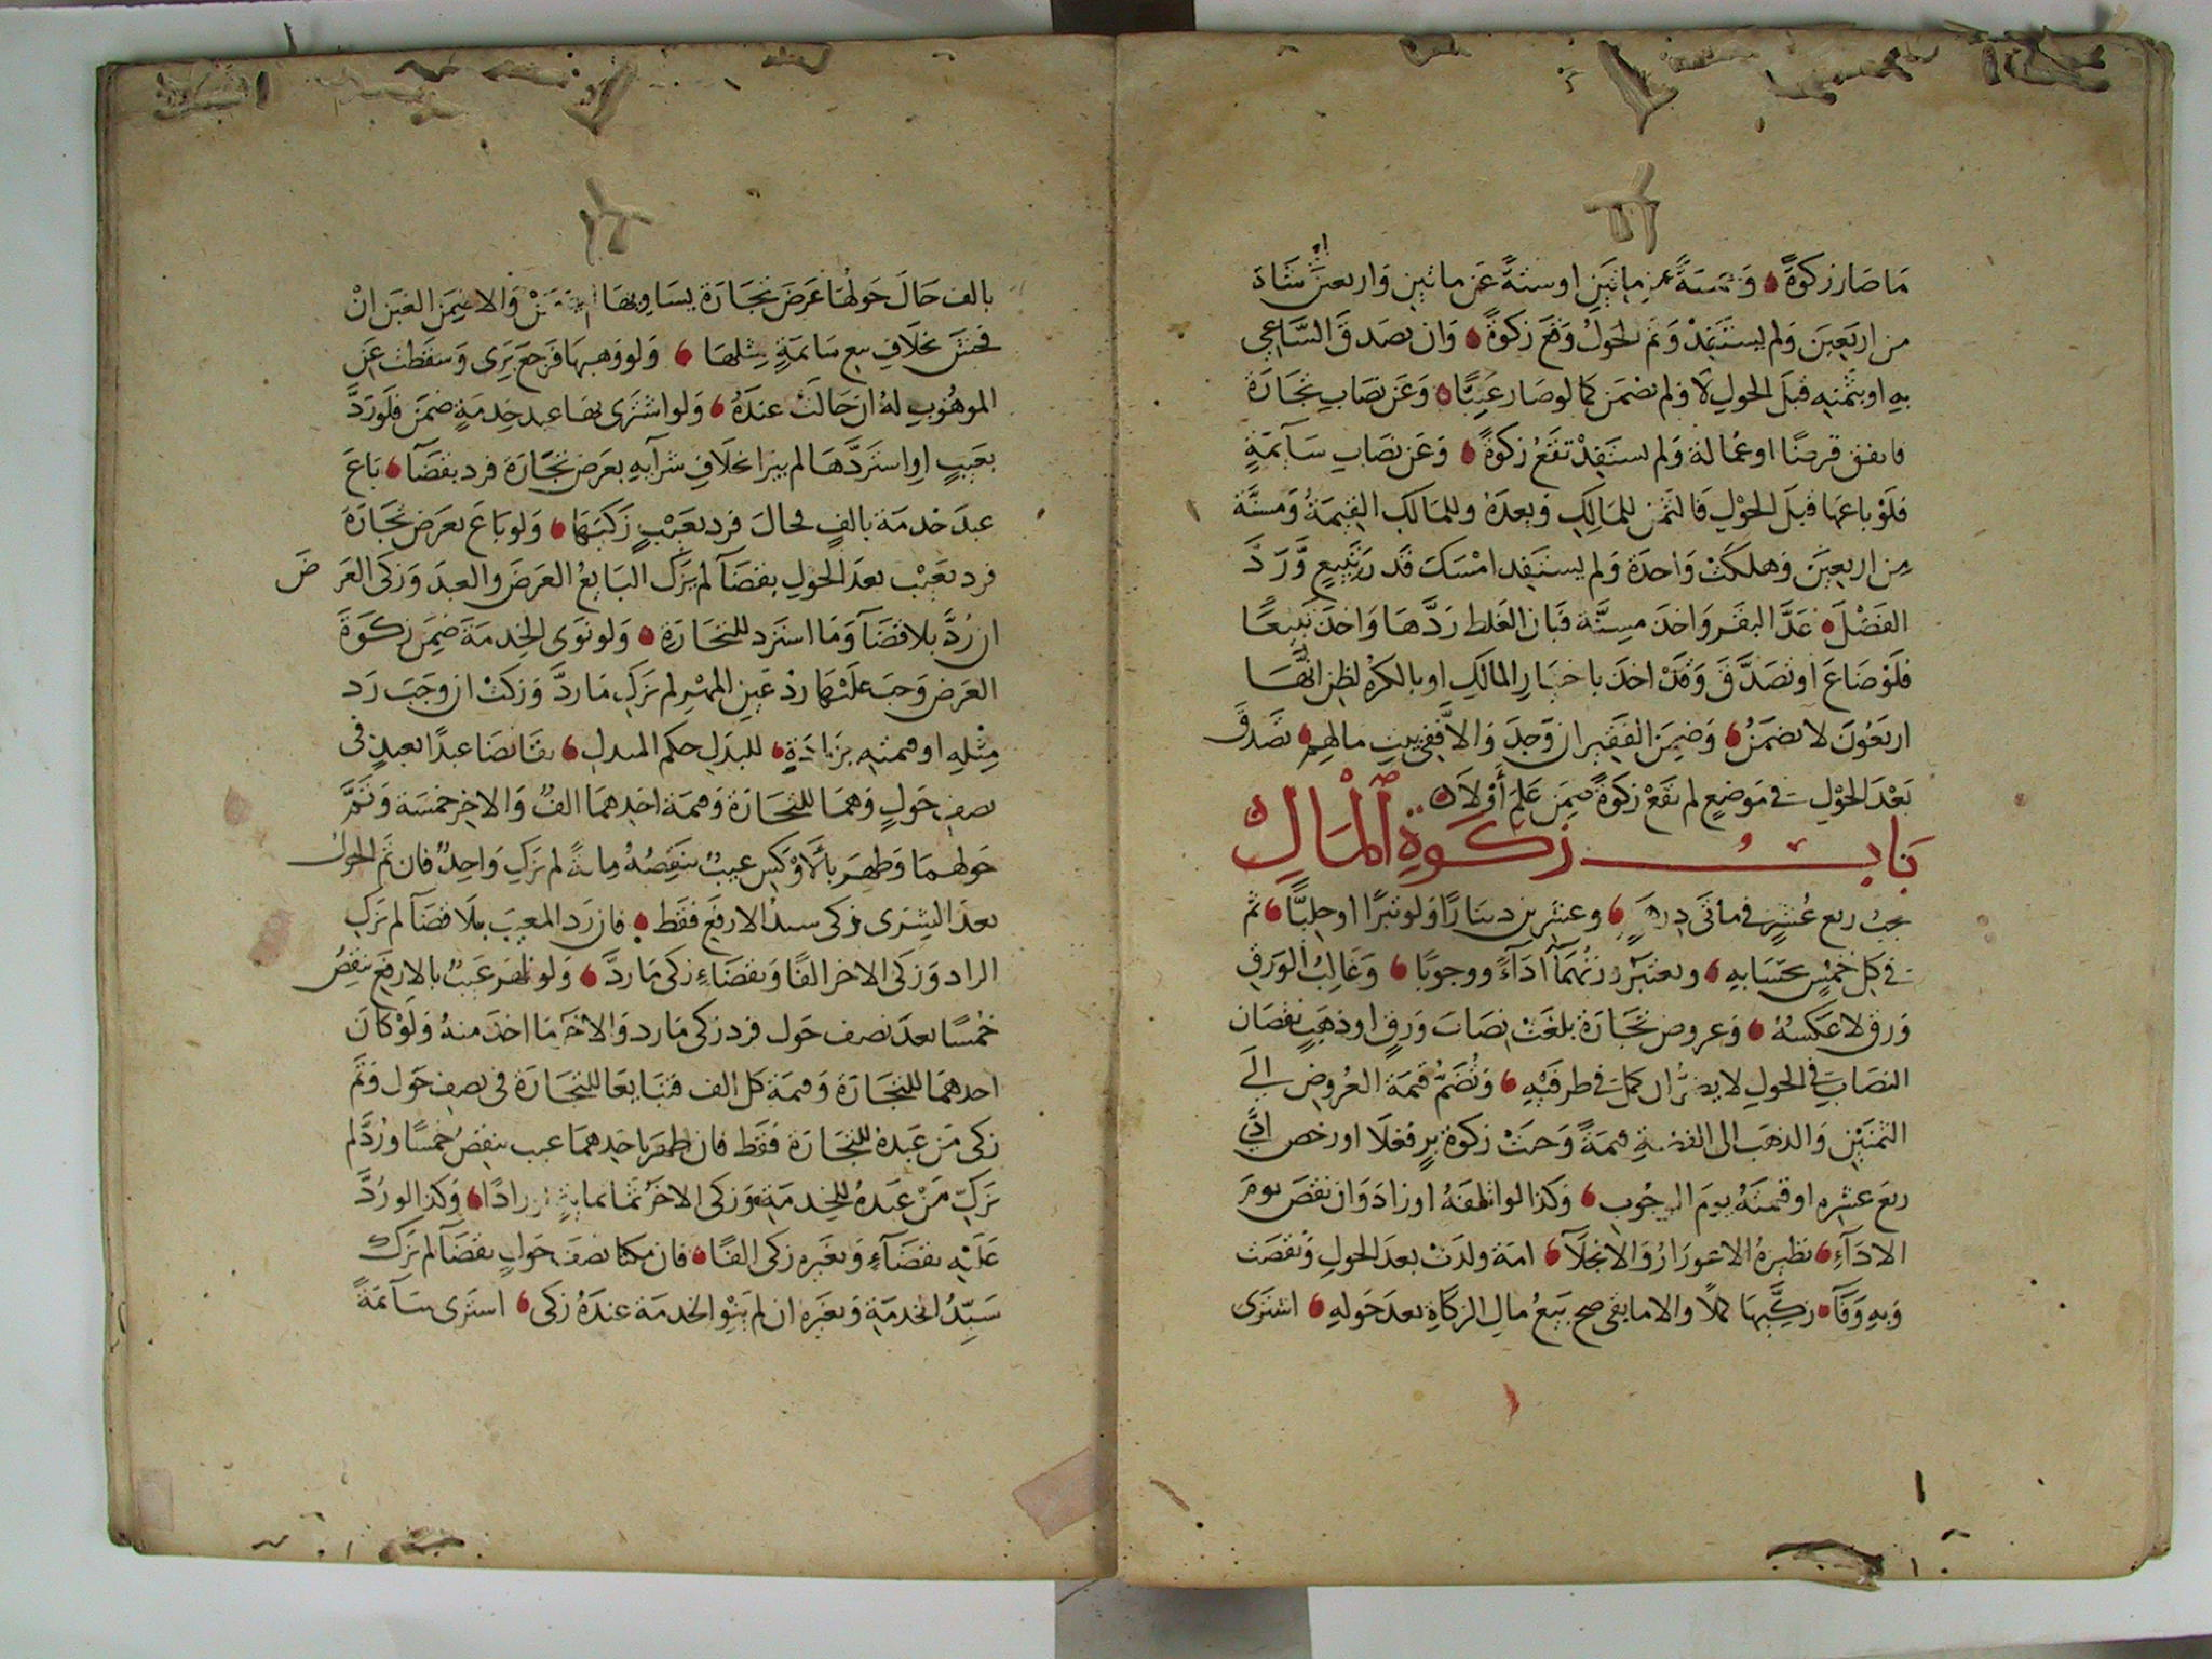 ما صار زكوة وخمسة عن مايتين او ستة عن مايتين واربعين شاة
من اربعين ولم يستفد وتم الحول وقع زكوة وان تصدق الساعي
به او بثمنه قبل الحول لا ولم يضمن كما لو صار غنيا وعن نصاب تجارة
فانفق قرضا او عمالة ولم يستفد تقع زكوة وعن نصاب سايمة
فلو باعها قبل الحول فالثمن للمالك وبعده وللمالك القيمة ومسنة
من اربعين وهلكت واحدة ولم يستفد امسك قدر تبيع ورد
الفضل عد البقر واخذ مسنة فبان الغلط ردها واخذ تبيعا
فلو ضاع او تصدق وقد اخذ باختيار المالك او بالكره لظن انها
اربعون لا يضمن وضمن الفقير ان وجد والا ففي بيت مالهم تصدق
بعد الحول في موضع لم تقع زكوة ضمن علم أولا
باب زكوة المال
يجب ربع عشر في مائتي درهم وعشرين دينارا ولو تبرا او حليا ثم
في كل خمس بحسابه ويعتبر وزنهما أداء ووجوبا وغالب الورق
ورق لا عكسه وعروض تجارة بلغت نصاب ورق او ذهب نقصان
النصاب في الحول لا يضر ان كمل في طرفيه وتضم قيمة العروض الى
الثمنين والذهب الى الفضة قيمة وجبت زكوة بر فغلا او رخص ادى
ربع عشره او قيمته يوم الوجوب وكذا لو اتلفه او زاد وان نقص يوم
الاداء نظيره الاعورار والانجلا امة ولدت بعد الحول ونقصت
وبه وفا زكيها كملا والا ما بقي صح بيع مال الزكاة بعد حوله اشترى
بالف حال حولها عرض تجارة يساويها والا ضمن الغبن ان
فحش بخلاف بيع سايمة بمثلها ولو وهبها فرجع بري وسقطت عن
الموهوب له ان حالت عنده ولو اشترى بها عبد خدمة ضمن فلو رد
بعيب او استردها لم يبرا بخلاف شرآيه بعرض تجارة فرد بقضآ باع
عبد خدمة بالف فحال فرد بعيب زكيها ولو باع بعرض تجارة
فرد بعيب بعد الحول بقضآ لم يزك البايع العرض والعبد وزكى العرض
ان رد بلا قضآ وما استرد للتجارة ولو نوى الخدمة ضمن زكوة
العرض وجب عليها رد عين المهر لم تزك ما رد وزكت ان وجب رد
مثله او قيمته بزيادة للبدل حكم المبدل تقايضا عبدا بعبد في
نصف حول وهما للتجارة وقيمة احدهما الف والاخر خمسة وتم
حولهما وظهر بالاوكس عيب ينقصه ماية لم يزك واحد فان تم الحول
بعد الشرى زكى سيد الارفع فقط فان رد المعيب بلا قضآ لم يزك
الراد وزكى الاخر الفا وبقضاء زكى ما رد ولو ظهر عيب بالارفع ينقص
خمسا بعد نصف حول فرد زكى ما رد والاخر ما اخذ منه ولو كان
احدهما للتجارة وقيمة كل الف فتبايعا للتجارة في نصف حول وتم
زكى من عبده للتجارة فقط فان ظهر باحدهما عيب ينقص خمسا ورد لم
يزك من عبده للخدمة وزكى الاخر ثمانماية رادا وكذا لو رد
عليه بقضآء وبغيره زكى الفا فان مكثا نصف حول بقضآ لم يزك
سيد الخدمة وبغيره ان لم ينو الخدمة عنده زكى اشترى سآيمة